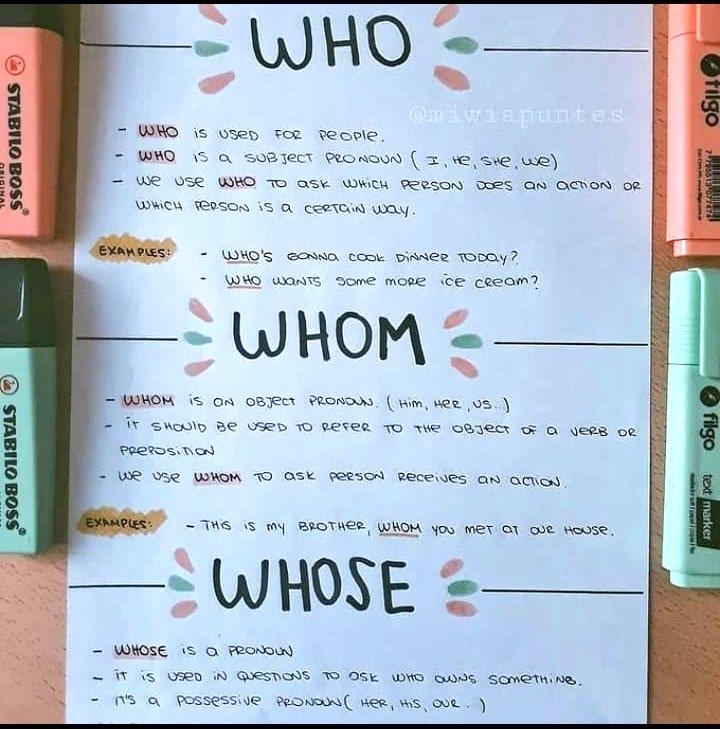 WHO
@miwiapuntes
- WHO IS USED FOR PEOPLE.
- WHO IS A SUBJECT PRONOUN ( I, HE, SHE, WE)
- WE USE WHO TO ASK WHICH PERSON DOES AN ACTION OR
WHICH PERSON IS A CERTAIN WAY.
EXAMPLES:
- WHO'S GONNA COOK DINNER TODAY?
- WHO WANTS SOME MORE ICE CREAM?
WHOM
- WHOM IS AN OBJECT PRONOUN. ( HIM, HER, US...)
- IT SHOULD BE USED TO REFER TO THE OBJECT OF A VERB OR
PREPOSITION
- WE USE WHOM TO ASK PERSON RECEIVES AN ACTION.
EXAMPLES:
- THIS IS MY BROTHER, WHOM YOU MET AT OUR HOUSE.
WHOSE
- WHOSE IS A PRONOUN
- IT IS USED IN QUESTIONS TO ASK WHO OWNS SOMETHING.
- IT'S A POSSESSIVE PRONOUN( HER, HIS, OUR..)
STABILO BOSS
ORIGINAL
STABILO BOSS
filgo
filgo
text marker